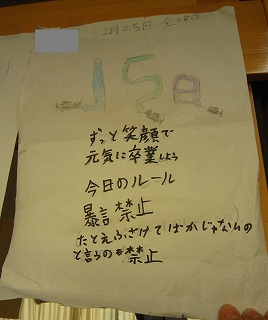 2月25日 金曜日
15日
ずっと笑顔で
元気に卒業しよう
今日のルール
暴言禁止
たとえふざけてばかじゃないの
と言うのも禁止